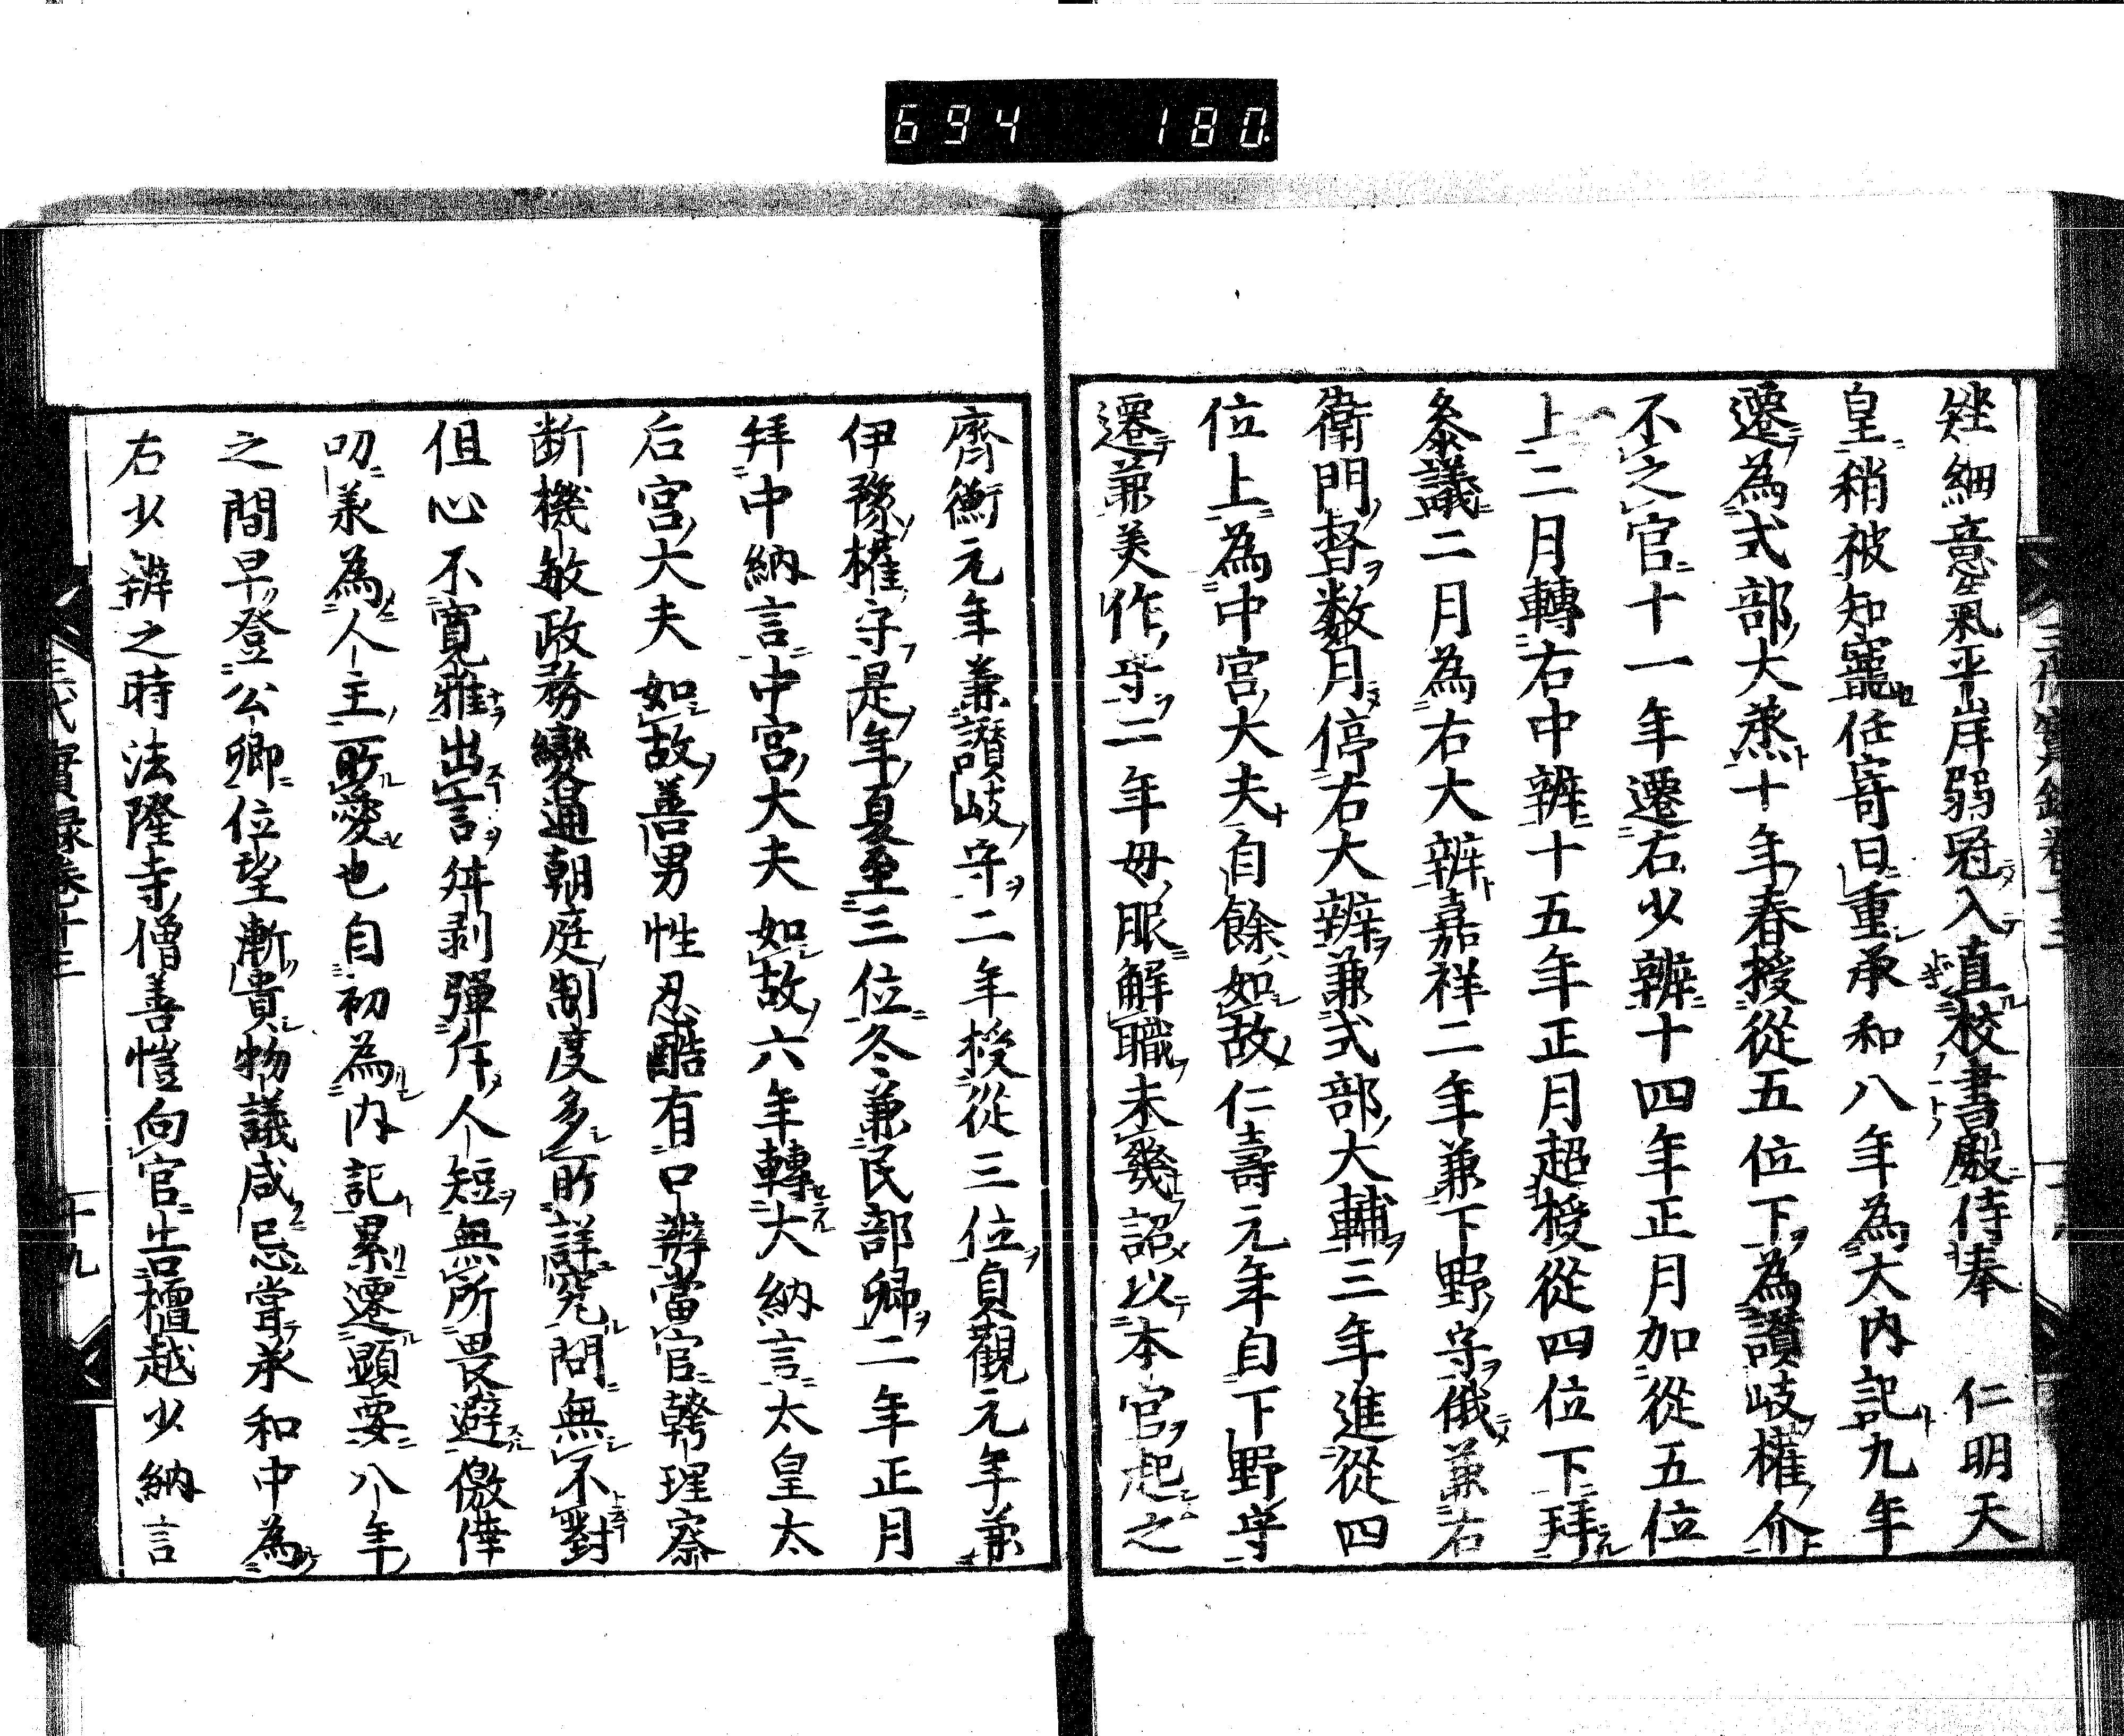 694 180.
細意氣平岸弱冠入直校書殿侍奉 仁明天
皇稍被知寵任寄日重承和八年為大内記九年
遷為式部大烝十年春授從五位下為讃岐權介
不之官十一年遷右少辨十四年正月加從五位
上二月轉右中辨十五年正月超授從四位下拜
叅議二月為右大辨嘉祥二年兼下野守俄兼右
衛門督数月停右大辨兼式部大輔三年進從四
位上為中宮大夫自餘如故仁壽元年自下野守
遷兼美作守二年毋服解職未幾詔以本官起之
齊衡元年兼讃岐守二年授從三位貞觀元年兼
伊豫權守是年夏至三位冬兼民部卿二年正月
拜中納言中宮大夫如故六年轉大納言太皇太
后宮大夫如故善男性忍酷有口辨當官幹理察
断機敏政務變通朝庭制度多所詳究問無不對
但心不寛雅出言舛剥彈斥人短無所畏避儌倖
叨羕為人主所愛也自初為内記累遷顯要八年
之間早登公卿位望漸貴物議咸忌當承和中為
右少辨之時法隆寺僧善愷向官告檀越少納言
三代實録卷十三
十九